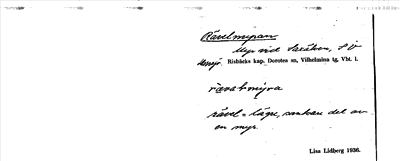 Rävelmyran
Myr vid Saxåsen, S Ö
Risbäcks kap. Dorotea sn, Vilhelmina tg, Vbl. l.
rävel = lägre, sankare del av
en myr.
Lisa Lidberg 1936.